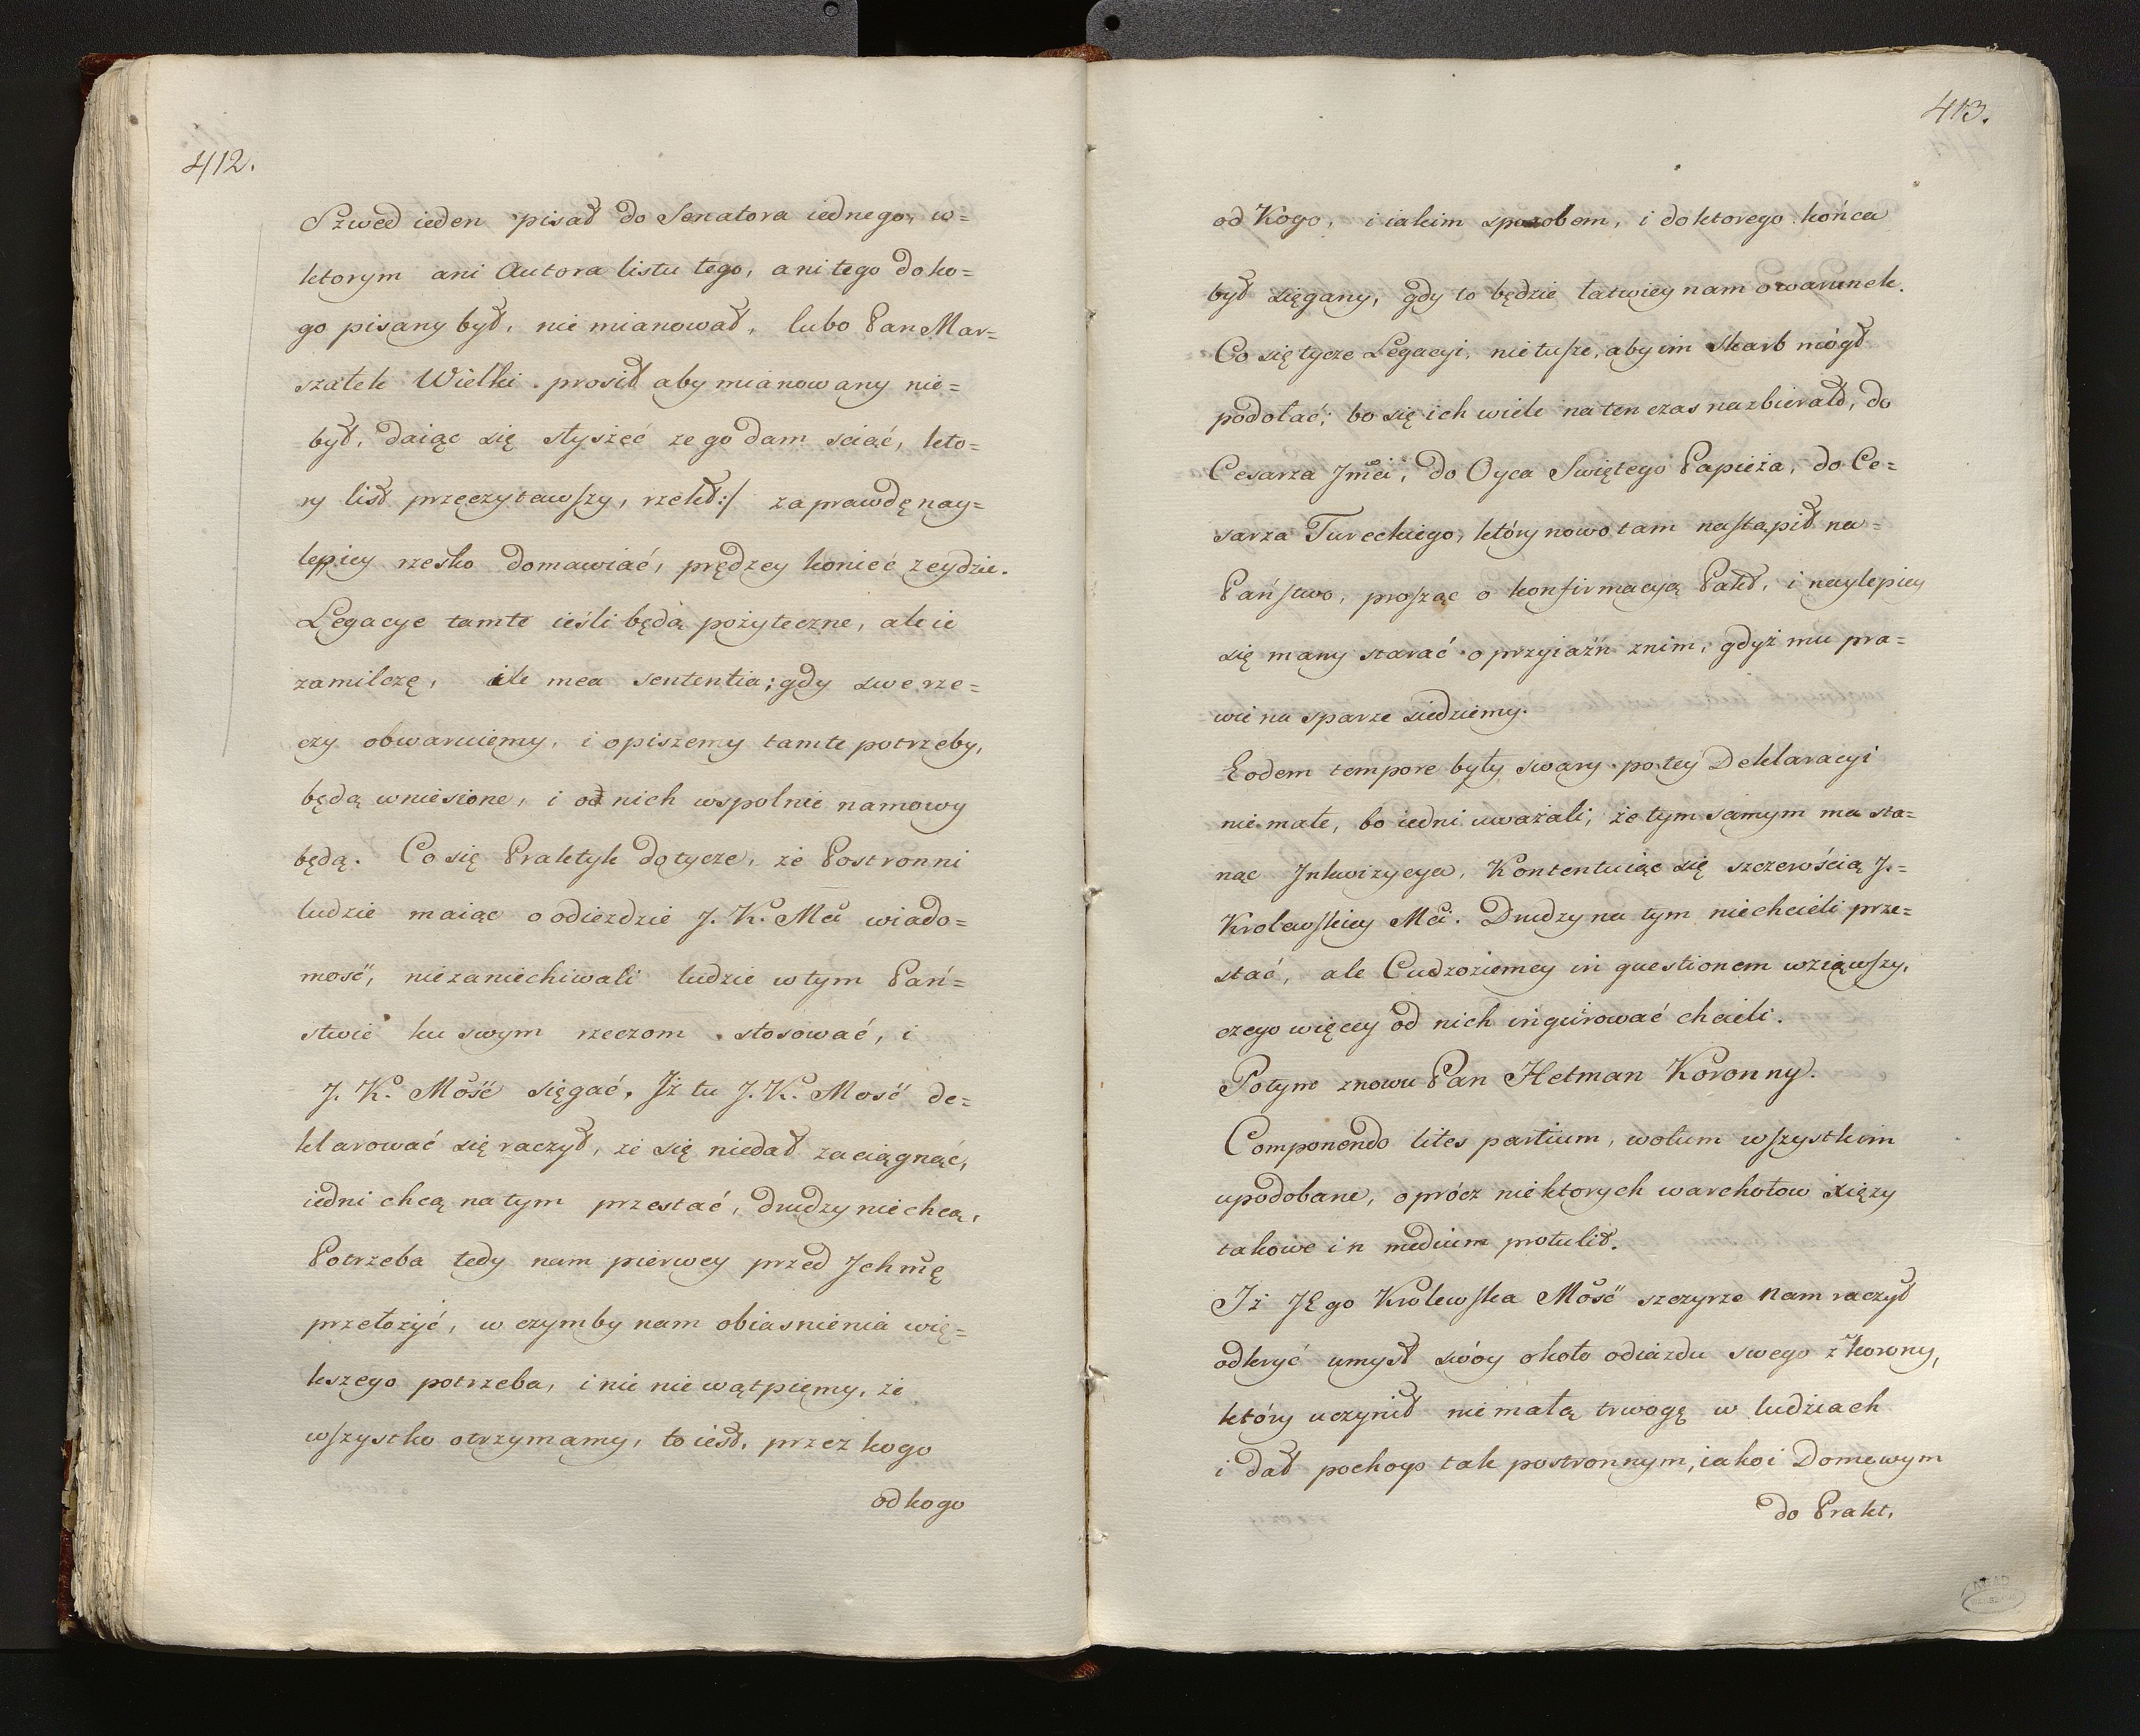 412.
Szwed ieden pisał do Senatora iednego, w=
ktorym ani Autora listu tego, ani tego do ko=
go pisany był, nie mianował, lubo Pan Mar=
szałek Wielki prosił aby mianowany nie=
był, daiąc się słyszeć ze go dam sciąć, kto=
ry list przeczytawszy, rzekł:/ zaprawdę nay=
lepiey rzesko domawiać, prędzey konieć zeydzie.
Legacye tamte ieśli będą pożyteczne, ale ie
zamilczę, ile mea sententia; gdy swe rze=
czy obwaruiemy, i opiszemy tamte potrzeby,
będą wniesione, i od nich wspolnie namowy
będą. Co się Praktyk dotycze, że Postronni
ludzie maiąc o odiezdzie J. K. Mci wiado=
mość, niezaniechiwali ludzie w tym Pań=
stwie ku swym rzeczom stosować, i
J. K. Mość sięgać, Iż tu J. K. Mość de=
klarować się raczył, że się niedał zaciągnąć,
iedni chcą na tym przestać, drudzy niechcą,
Potrzeba tedy nam pierwey przed Ichmę
przełożyć, w czymby nam obiasnienia wię=
kszego potrzeba, i nie nie wątpiemy, że
wszystko otrzymamy, to iest, przez kogo
od kogo
413.
od Kogo, i iakim sposobem, i do ktorego końca
był sięgany, gdy to będzie łatwiey nam o warunek.
Co się tycze Legacyi, nie tuszę, aby im Skarb mógł
podołać; bo się ich wiele na ten czas nazbierało, do
Cesarza Jmci, do Oyca Swiętego Papieża, do Ce=
sarza Tureckiego, który nowo tam nastąpił na=
Państwo, prosząc o konfirmacyą Pakt, i naylepiey
się mamy starać o przyiaźń z nim, gdyż mu pra=
wie na sparze siedziemy.
Eodem tempore były swary po tey Deklaracyi
niemałe, bo iedni uważali, że tym samym ma sta=
nąć Inkwizycya, Kontentuiąc się szczerością J.=
Krolewskiey Mci. Drudzy na tym niechcieli prze=
stać, ale Cudzoziemcy in questionem wziąwszy,
czego więcey od nich inquirować chcieli.
Potym znowu Pan Hetman Koronny.
Componendo lites partium, wotum wszystkim
upodobane, oprócz niektorych warchołow xięży
takowe in medium protulit.
Iż JEgo Krolewska Mość szczyrze nam raczył
odkryć umysł swóy około odiazdu swego z korony,
który uczynił niemałą trwogę w ludziach
i dał pochop tak postronnym, iako i Domowym
do Prakt.